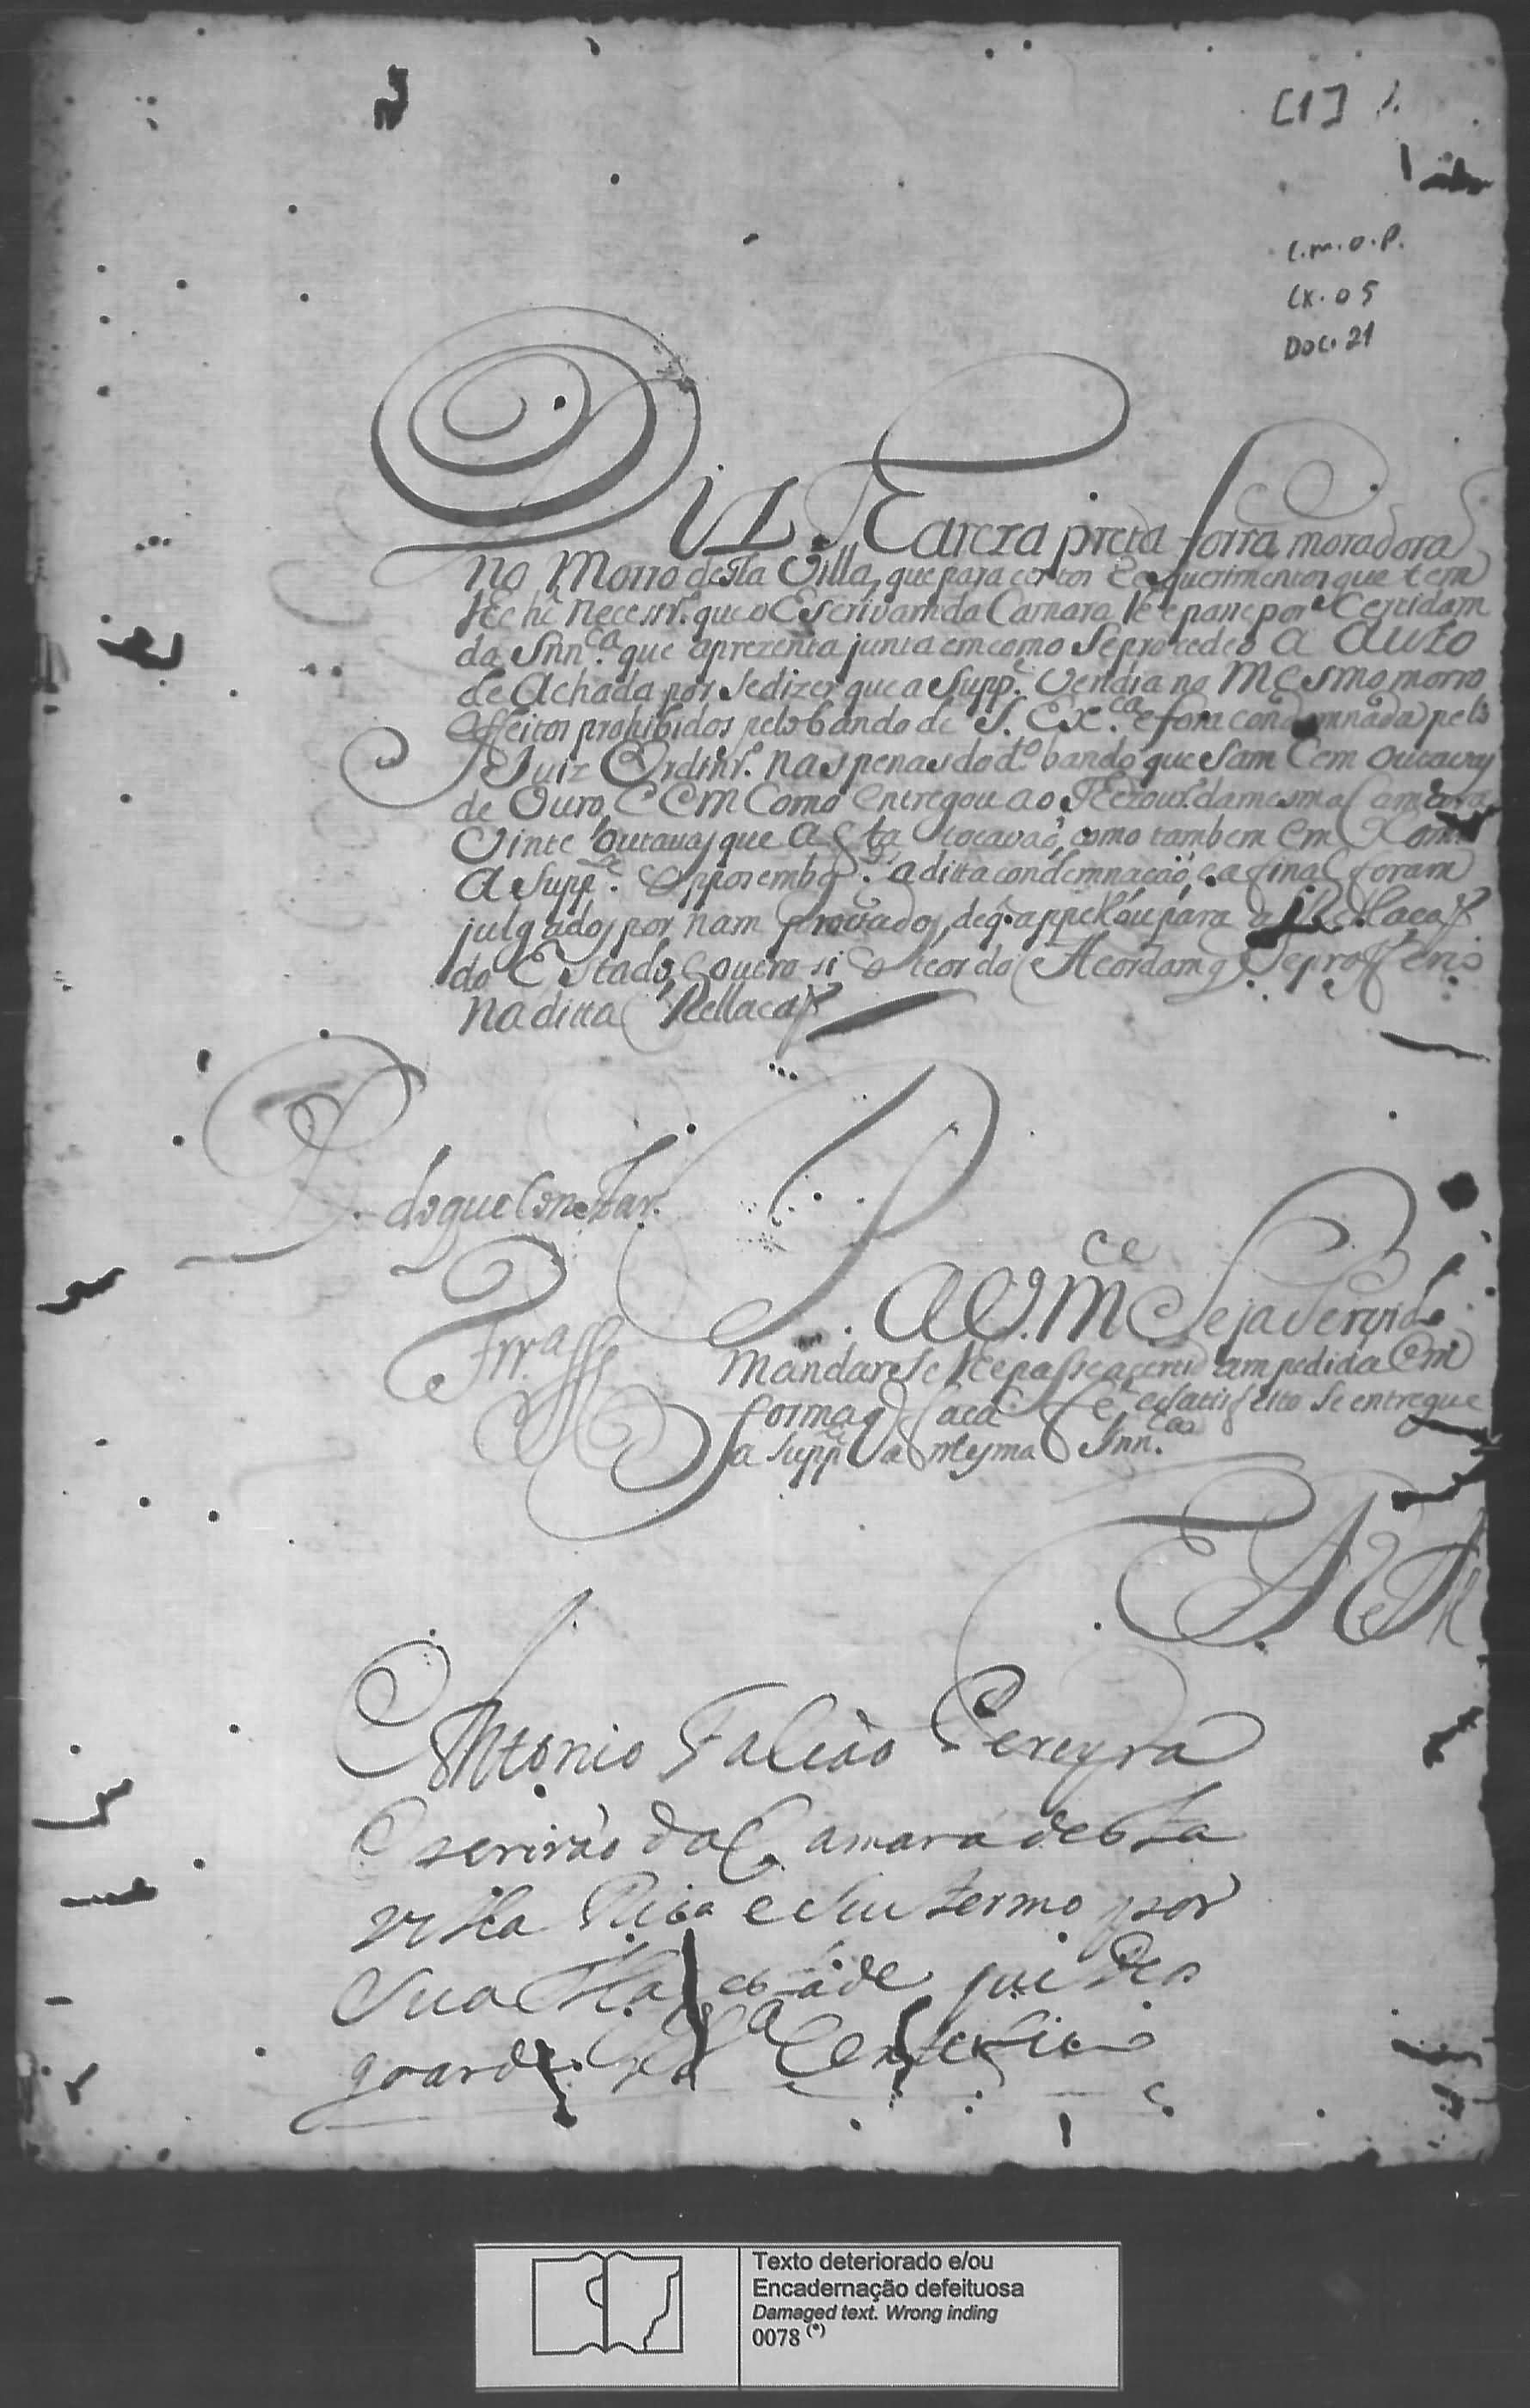 [1] 1.
C.M.O.P.
Cx. 05
Doc. 21
Diz Tareza preta forra moradora
no Morro desta Villa, que para certos requerimentos que tem
lhe he necessr.º que o Escrivam da Camara lhe passe por Certidam
da Snn.ça que aprezenta junta em como se procedeo a Auto
de Achada por se dizer que a Supp.e vendia no mesmo morro
effeitos prohibidos pelo bando de S. Ex.ca e fora condemnada pelo
Juiz Ordinr.º nas penas do d.º bando que sam Cem outavas
de Ouro, e em como entregou ao Thezour. da mesma Camara
vinte outavas que a esta tocavaõ, como tambem em como
a Supp.e oppos embg.os a ditta condemnaçaõ, e a final foram
julgados por nam provados, de q. appellou para a Rellaçaõ
do Estado, e outro si o teor do Acordam q. se profferio
na ditta Rellaçaõ
P. do que Constar.
P. a V. M.ce Seja Servido
mandar se lhe passe a certidam pedida em
forma q. faça fe e satisfeito se entregue
a Supp.e a mesma Snn.ca
E R M
Antonio Falcão Pereyra
Escrivão da Camara desta
Villa Rica e Seu termo por
Sua Magestade que Deos
goarde Certefico
Texto deteriorado e/ou
Encadernação defeituosa
Damaged text. Wrong inding
0078 (*)